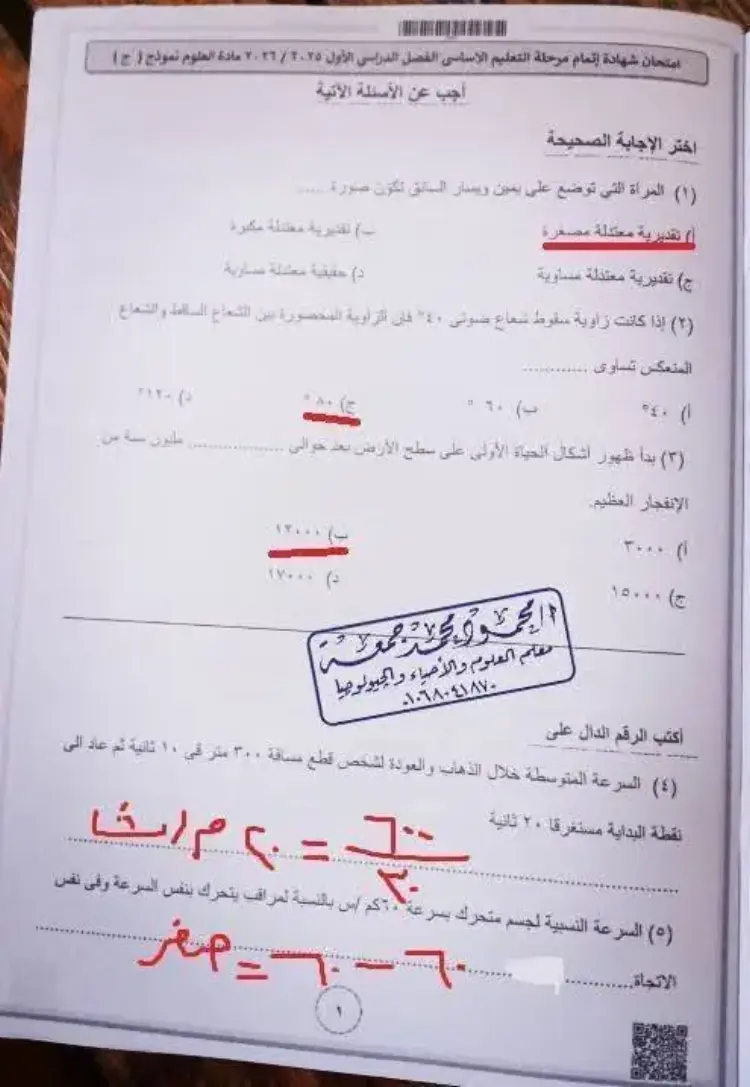 امتحان شهادة إتمام مرحلة التعليم الاساسى الفصل الدراسي الأول ٢٠٢٥ / ٢٠٢٦ مادة العلوم نموذج ( ج )
أجب عن الأسئلة الأتية
اختر الإجابة الصحيحة
(١) المرآة التي توضع على يمين ويسار السائق تكون صورة .....
أ) تقديرية معتدلة مصغرة ب) تقديرية معتدلة مكبرة
ج) تقديرية معتدلة مساوية د) حقيقية معتدلة مساوية
(٢) إذا كانت زاوية سقوط شعاع ضوئى ٤٠° فإن الزاوية المحصورة بين الشعاع الساقط والشعاع
المنعكس تساوى ............
أ) ٤٠° ب) ٦٠° ج) ٨٠° د) ١٢٠°
(٣) بدأ ظهور أشكال الحياة الأولى على سطح الأرض بعد حوالى ................ مليون سنة من
الإنفجار العظيم.
أ) ٣٠٠٠ ب) ١٢٠٠٠
ج) ١٥٠٠٠ د) ١٧٠٠٠
أ/ محمود محمد جمعة
معلم العلوم والأحياء والجيولوجيا
٠١٠٦٨٠٤١٨٧٠
أكتب الرقم الدال على
(٤) السرعة المتوسطة خلال الذهاب والعودة لشخص قطع مسافة ٣٠٠ متر فى ١٠ ثانية ثم عاد الى
نقطة البداية مستغرقا ٢٠ ثانية
٦٠٠
= ٢٠ م/ث
٣٠
(٥) السرعة النسبية لجسم متحرك بسرعة ٦٠كم /س بالنسبة لمراقب يتحرك بنفس السرعة وفى نفس
الاتجاة............
٦٠ – ٦٠ = صفر
١